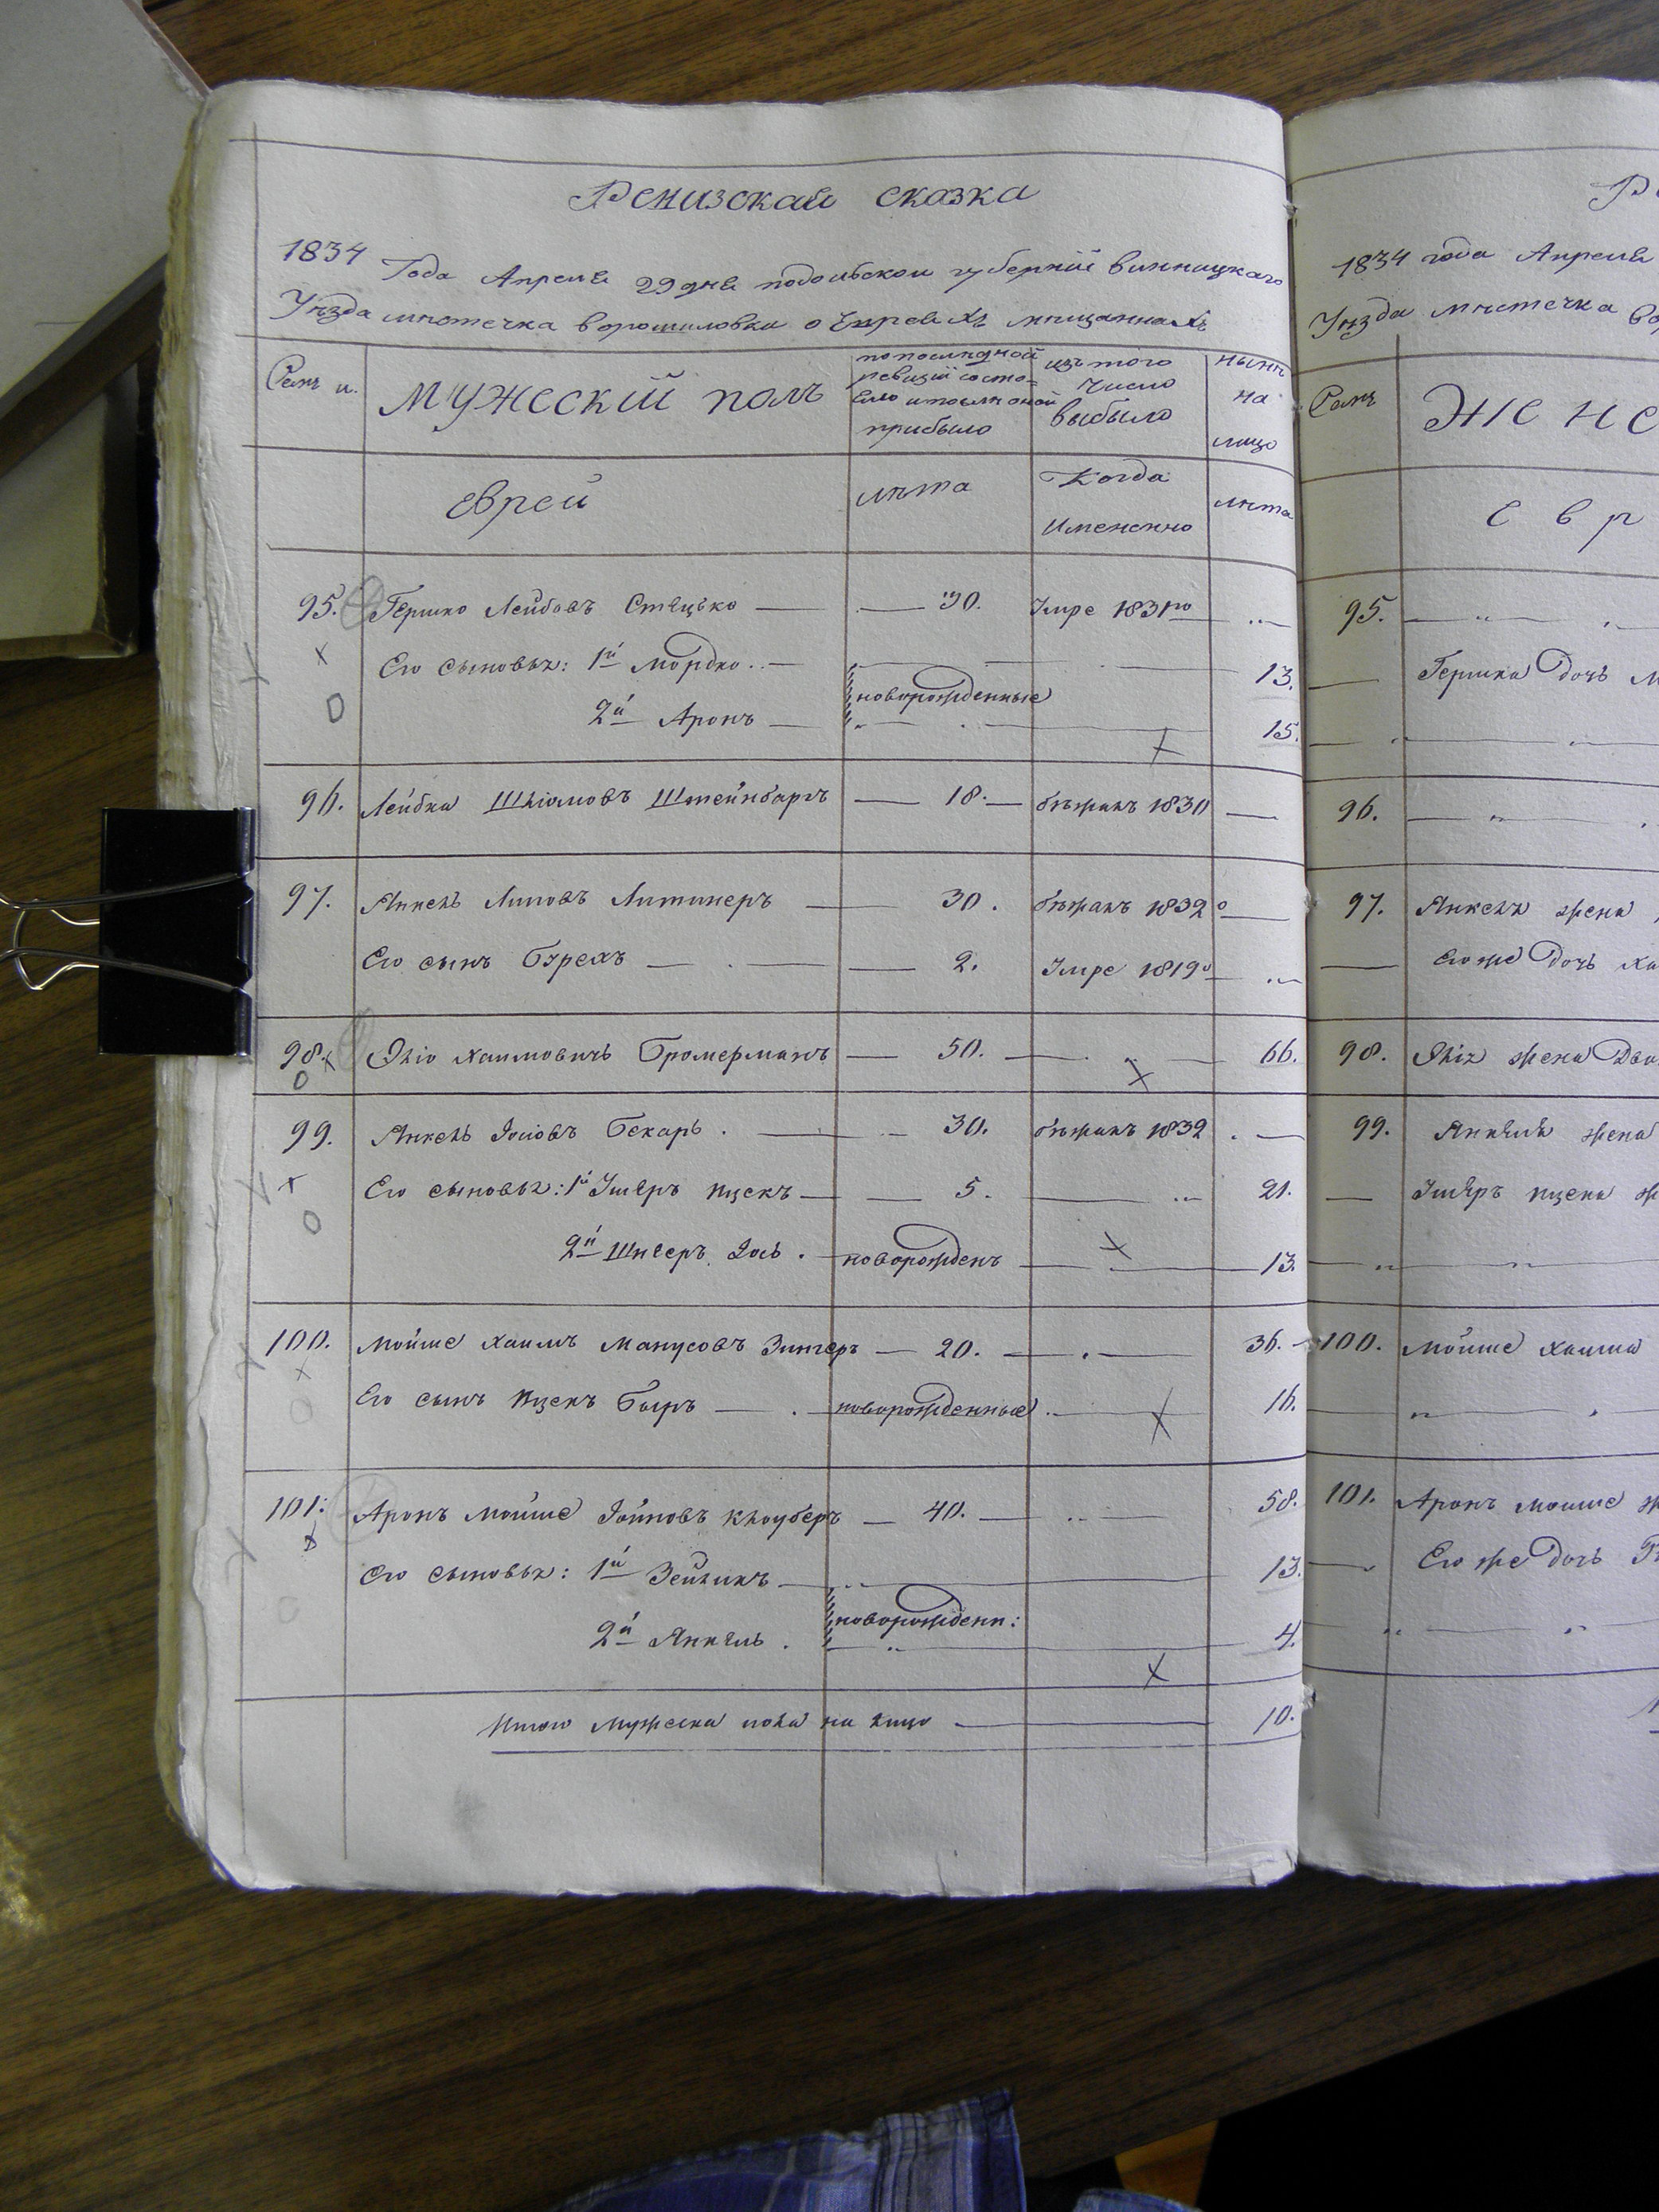 Ревизская сказка
1834 Года Апреля 29 дня подольской губернiй винницкаго
Уѣзда мѣстечка ворошиловки о Евреяхъ мѣщаннахъ
Семь и.
мужескiй полъ
по последной ревизiй состо=яло и после оной прибыло
изъ того число выбыло
нынѣ на лицо
еврей
лѣта
Когда Имененно
лѣта
95. Гершко Лейбовъ Стецько — 30. Умре 1831го
Его сыновья: 1й Мордко — 13.
новорожденные
2й Аронъ — 15.
96. Лейбка Шлiомовъ Штейнбаргъ — 18. — бѣжалъ 1830
97. Янкель Липовъ Литинеръ — 30. бѣжалъ 1832о
Его сынъ Бэрехъ — 2. Умре 1819о
98. Хаимовичъ — 50. — 66.
99. Янкель Iосiовъ Бекаръ — 30. бѣжалъ 1832
Его сыновья: 1й Ушеръ Ицекъ — 5. — 21.
2й Шнееръ Iось. новорожденъ — 13.
100. Мойше Хаимъ Манусовъ Зингеръ — 20. — 36.
Его сынъ Ицекъ Бэръ — новорожденные — 16.
101. Аронъ Мойше Iойновъ Клоуберъ — 40. — 58.
Его сыновья: 1й Зейликъ — 13.
новорожденн:
2й Янкель. — 4.
Итого мужеска пола на лицо — 10.
1834 года Апреля
Уѣзда мѣстечка
Семь
Жене
евр
95.
Гершка дочь
96.
97. Янкеля жена
Его же дочь
98. жена
99. Янкеля жена
Ушеръ Ицека
100. Мойше Хаима
101. Аронъ Мойше
Его же дочь